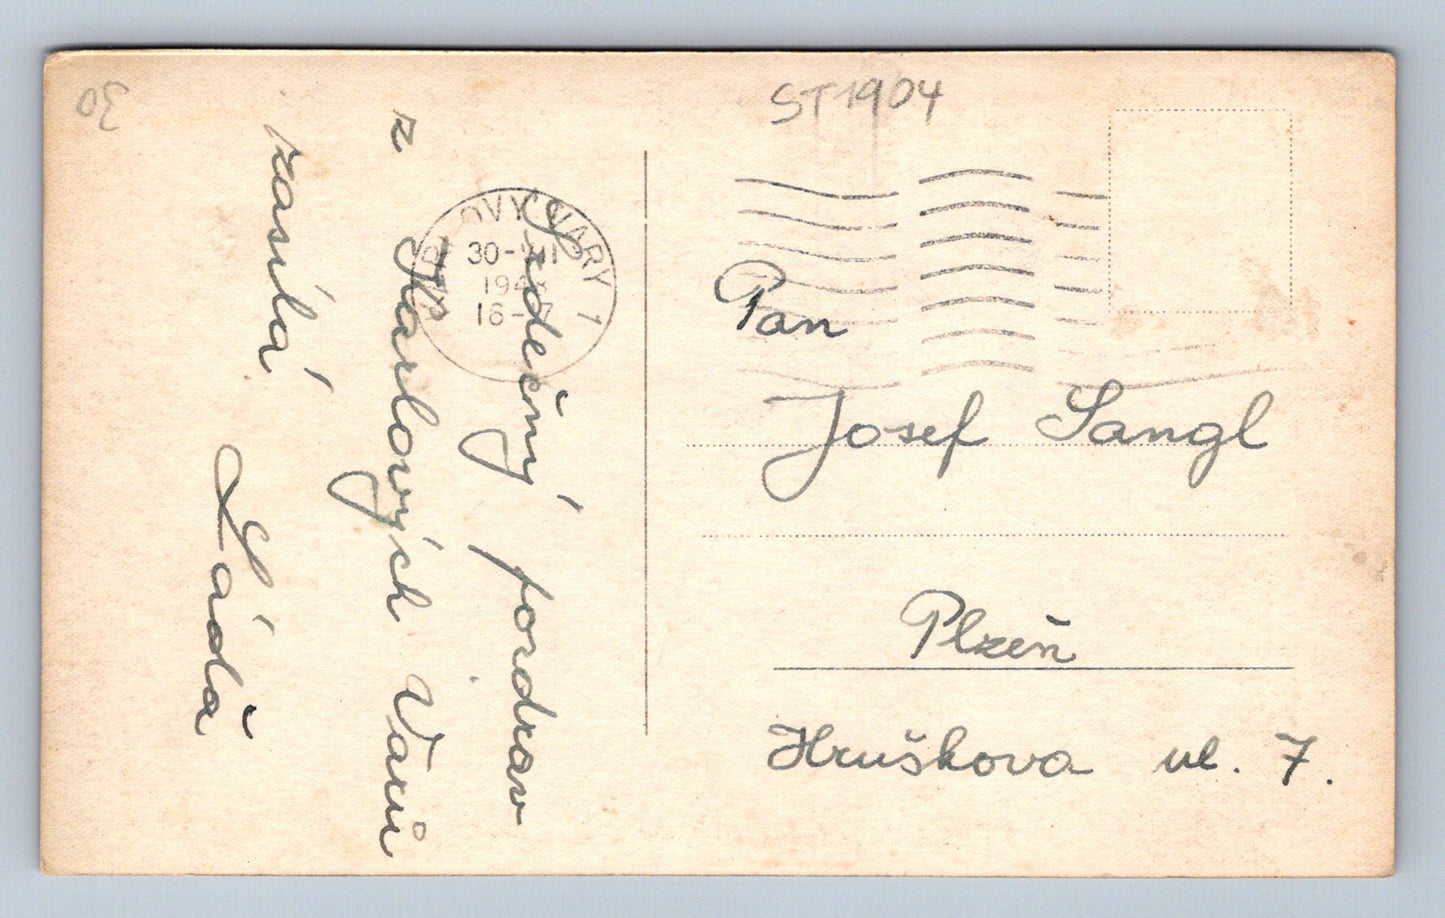 30
ST1904
KARLOVY VARY 1
30-VII
1948
16-17
Srdečný pozdrav
z Karlových Varů
zasílá
Láďa
Pan
Josef Sangl
Plzeň
Hruškova ul. 7.